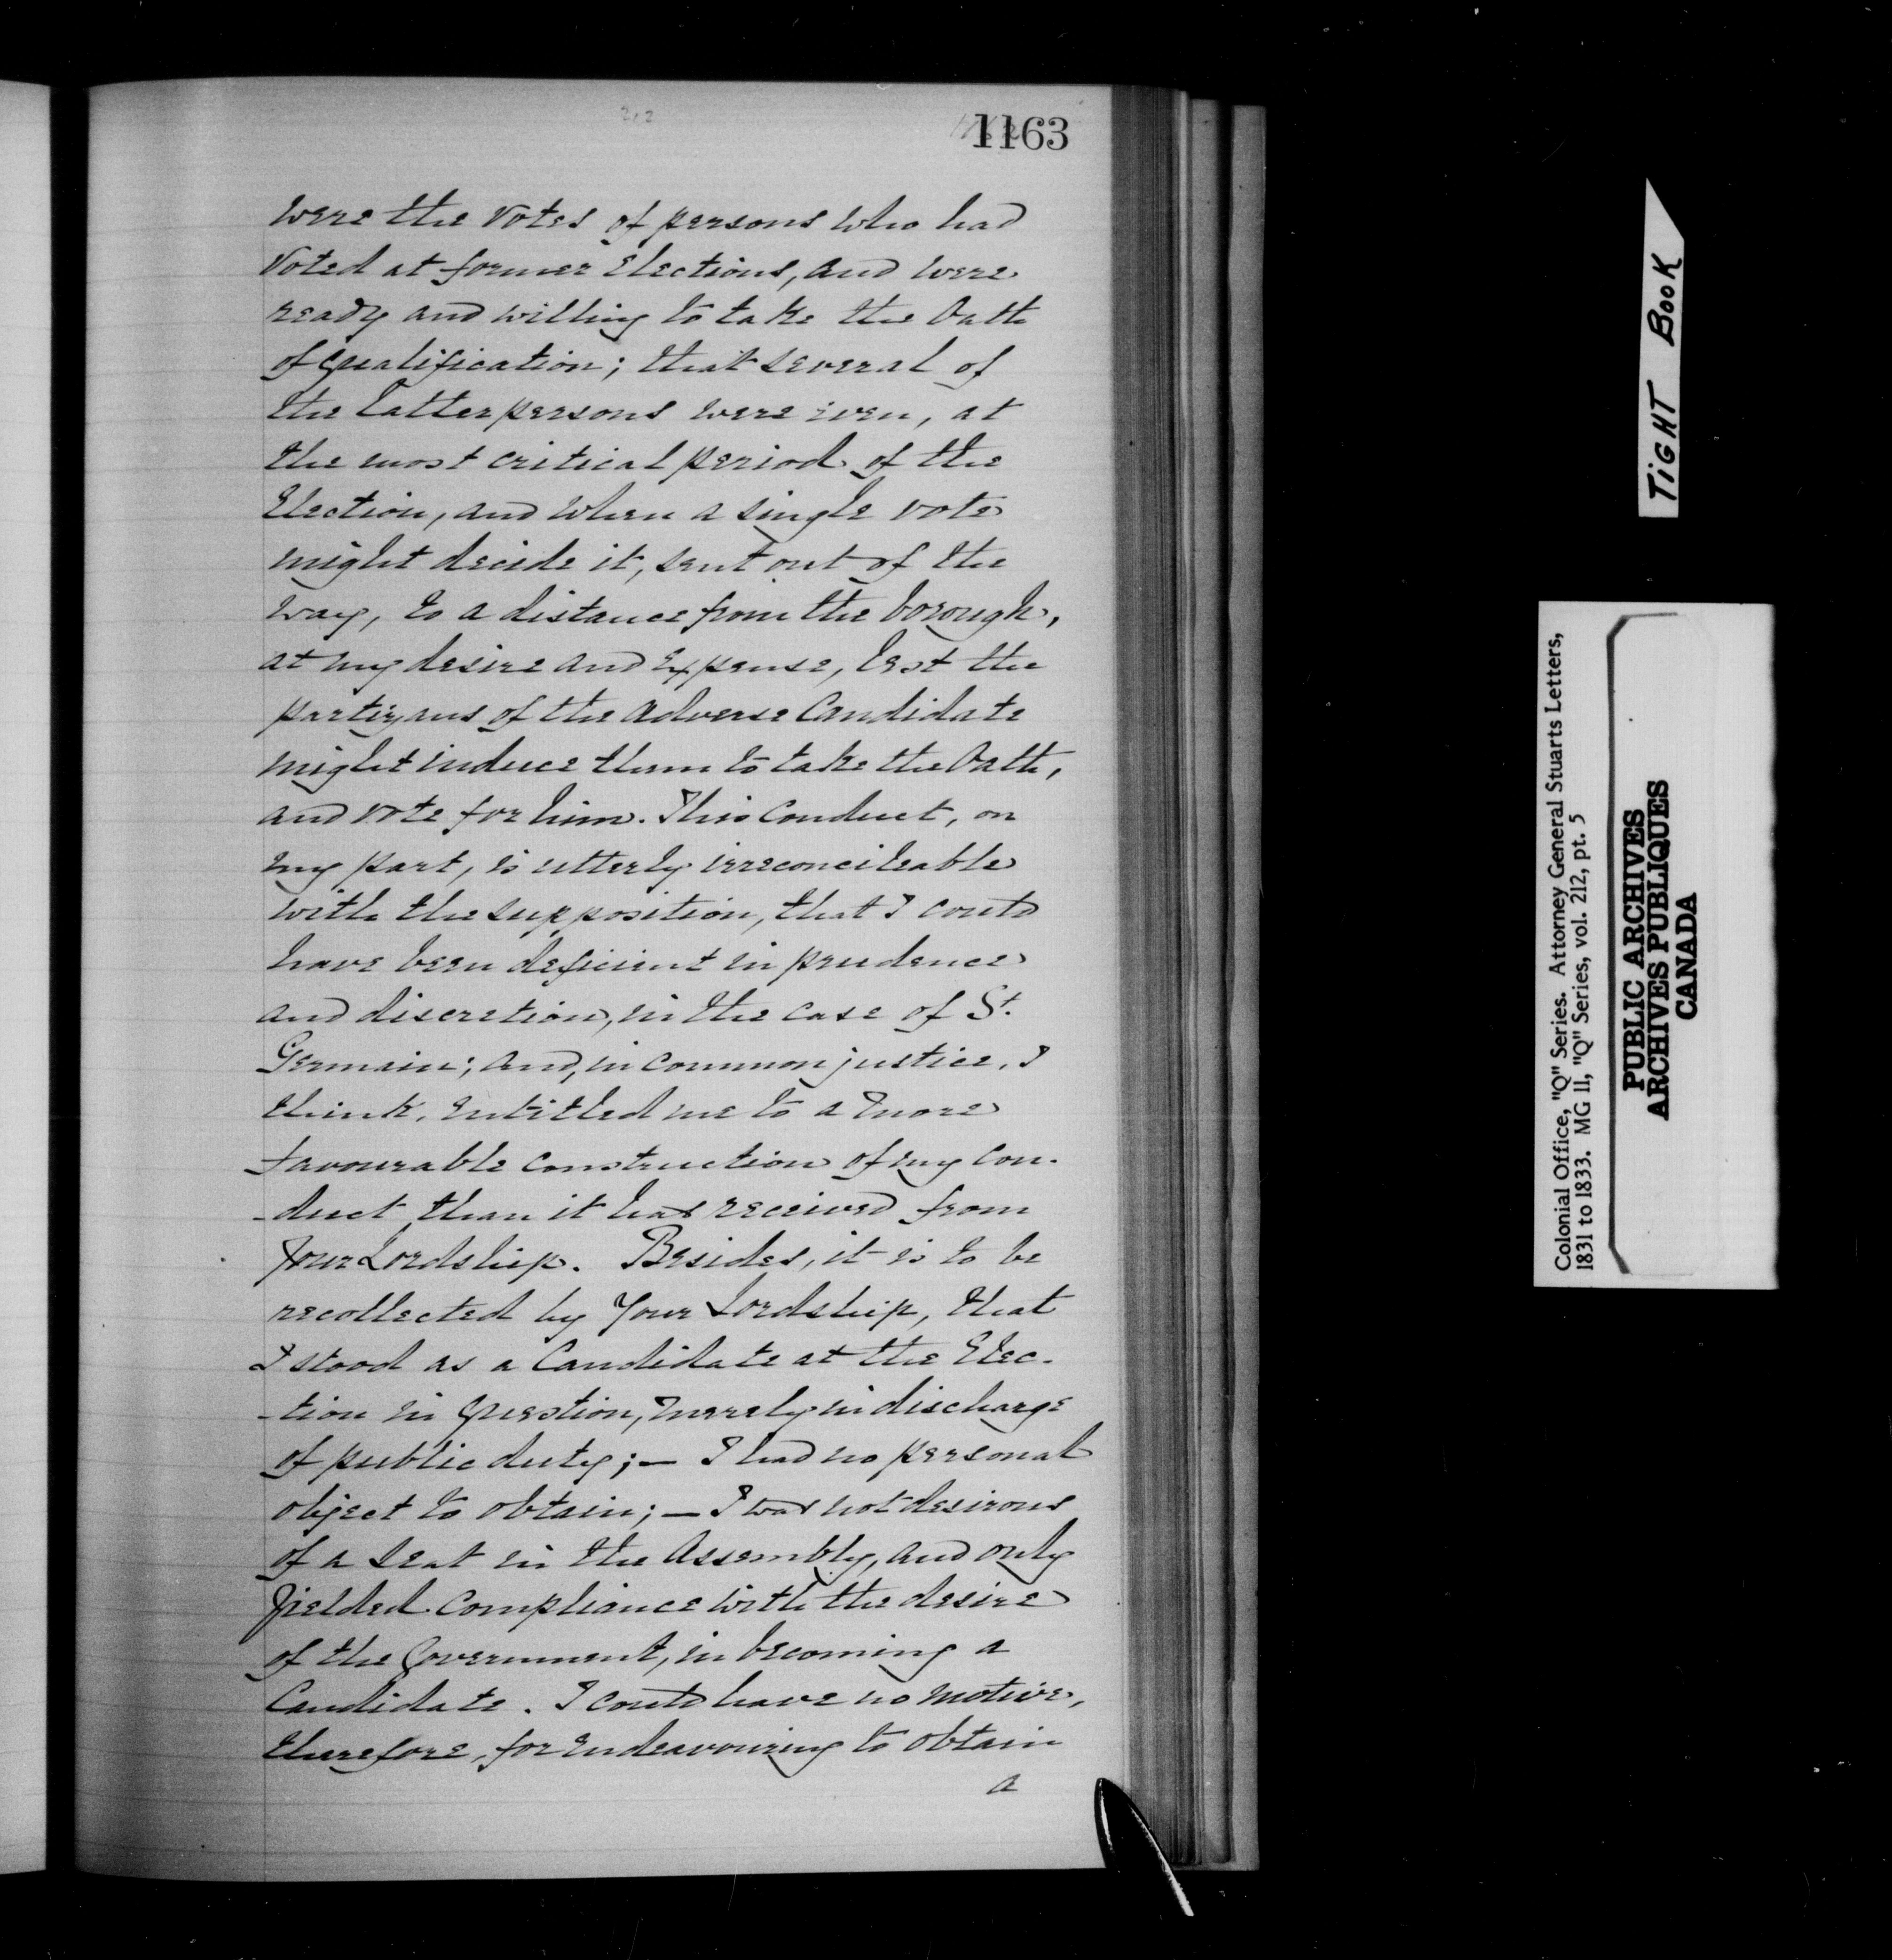 212
1163
were the votes of persons who had
voted at former Elections, and were
ready and willing to take the Oath
of qualification; that several of
the latter persons were even, at
the most critical period of the
Election, and when a single vote
might decide it, sent out of the
way, to a distance from the borough,
at my desire and expense, lest the
partizans of the adverse Candidate
might induce them to take the Oath,
and vote for him. This conduct, on
my part, is utterly irreconcileable
with the supposition, that I could
have been deficient in prudence
and discretion, in the case of St.
Germain; and, in common justice, I
think, entitled me to a more
favourable construction of my con-
-duct than it has received from
Your Lordship. Besides, it is to be
recollected by Your Lordship, that
I stood as a Candidate at the Elec-
-tion in question, merely in discharge
of public duty; — I had no personal
object to obtain; — I was not desirous
of a seat in the Assembly, and only
yielded compliance with the desire
of the Government, in becoming a
Candidate. I could have no motive,
therefore, for endeavouring to obtain
a
TIGHT BOOK
Colonial Office, "Q" Series. Attorney General Stuarts Letters,
1831 to 1833. MG 11, "Q" Series, vol. 212, pt. 5
PUBLIC ARCHIVES
ARCHIVES PUBLIQUES
CANADA